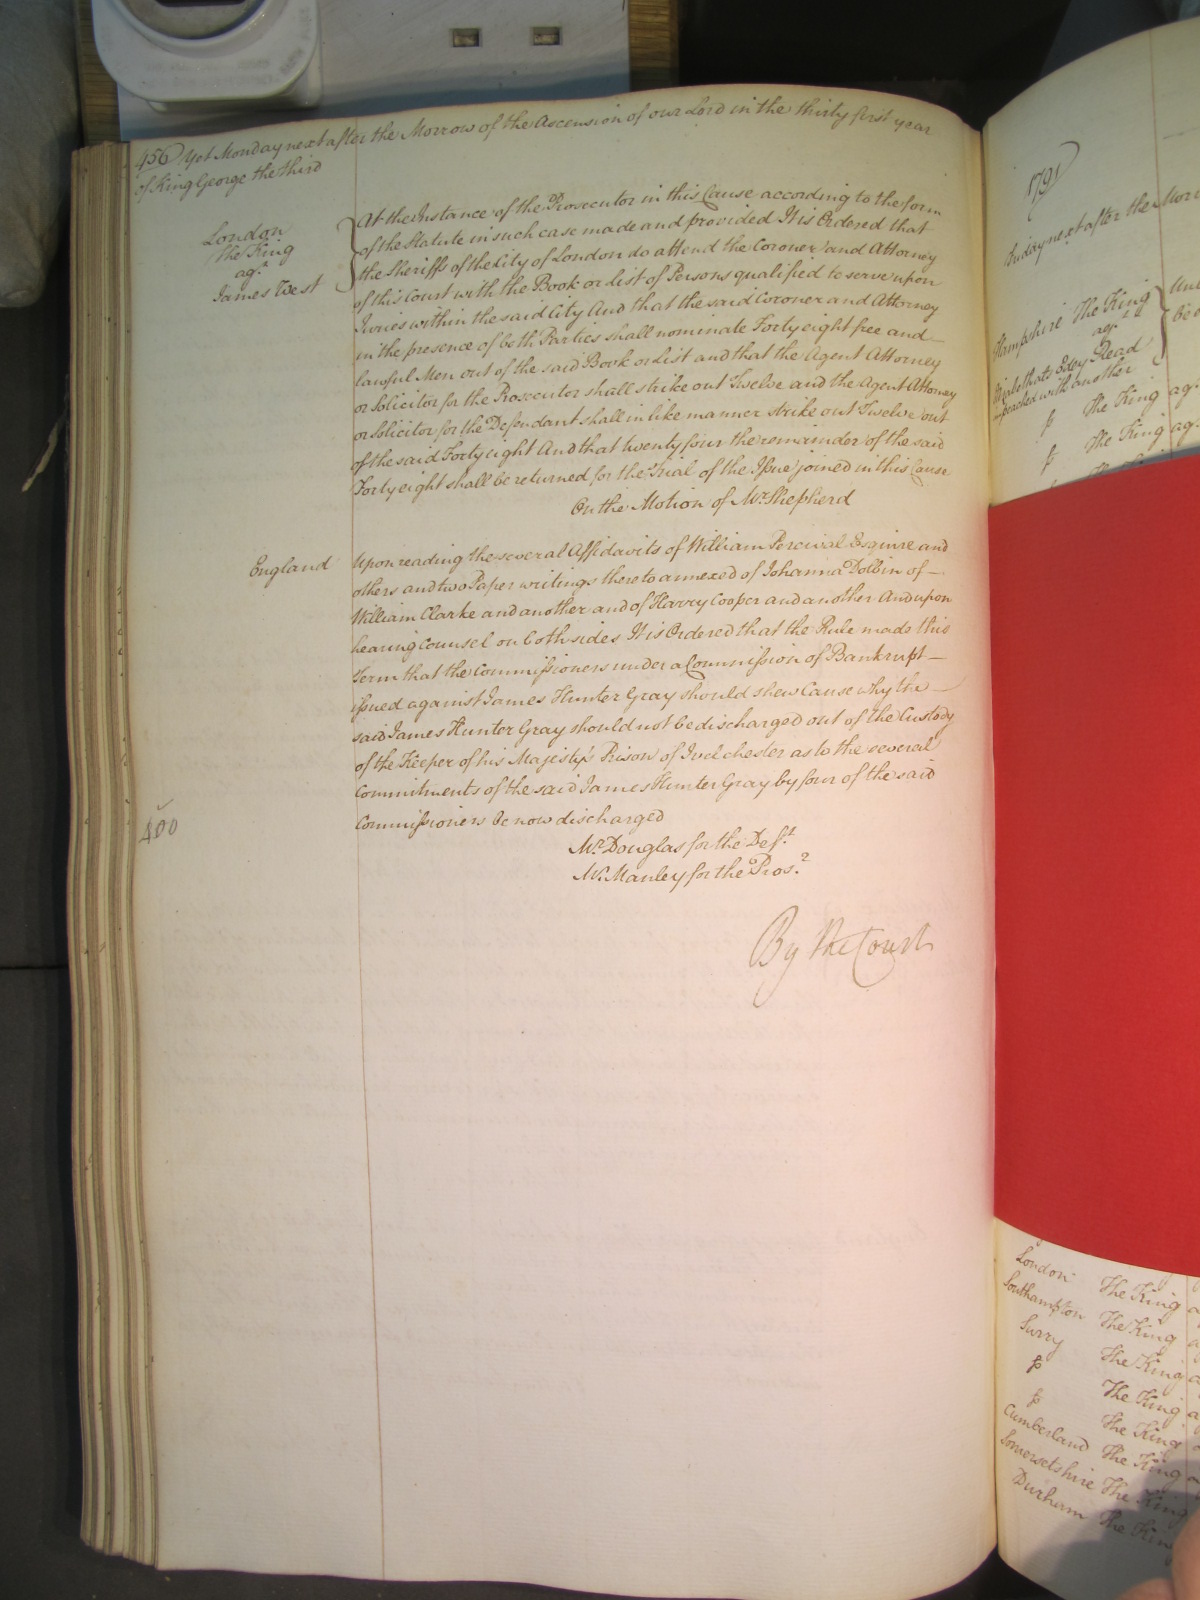 456 Yet Monday next after the Morrow of the Ascension of our Lord in the thirty first year
of King George the third
London
The King
agt
James West
At the Instance of the Prosecutor in this Cause according to the form
of the Statute in such case made and provided It is Ordered that
the Sheriffs of the City of London do attend the Coroner and Attorney
of this Court with the Book or list of Persons qualified to serve upon
Juries within the said City And that the said Coroner and Attorney
in the presence of both Parties shall nominate Forty eight free and
lawful Men out of the said Book or List and that the Agent Attorney
or Solicitor for the Prosecutor shall strike out Twelve and the Agent Attorney
or Solicitor for the Defendant shall in like manner strike out Twelve out
of the said Forty eight And that twenty four the remainder of the said
Forty eight shall be returned for the Trial of the Issue joined in this Cause
On the Motion of Mr. Shepherd
England
Upon reading the several Affidavits of William Percival Esquire and
others and two Paper writings thereto annexed of Johanna Dolbin of
William Clarke and another and of Harry Cooper and another And upon
hearing Counsel on both sides It is Ordered that the Rule made this
Term that the Commissioners under a Commission of Bankrupt
issued against James Hunter Gray should shew Cause why the
said James Hunter Gray should not be discharged out of the Custody
of the Keeper of his Majesty's Prison of Ivelchester as to the several
Commitments of the said James Hunter Gray by four of the said
Commissioners be now discharged
400
Mr. Douglas for the Deft
Mr. Manley for the Prosr
By the Court
1791
Friday next after the Morr
Hampshire The King
agt
Read
impeached with another
The King ag
The King ag
London The King
Southampton The King
Surry The King
The King
The King
Cumberland The King
Somersetshire The King
Durham The King